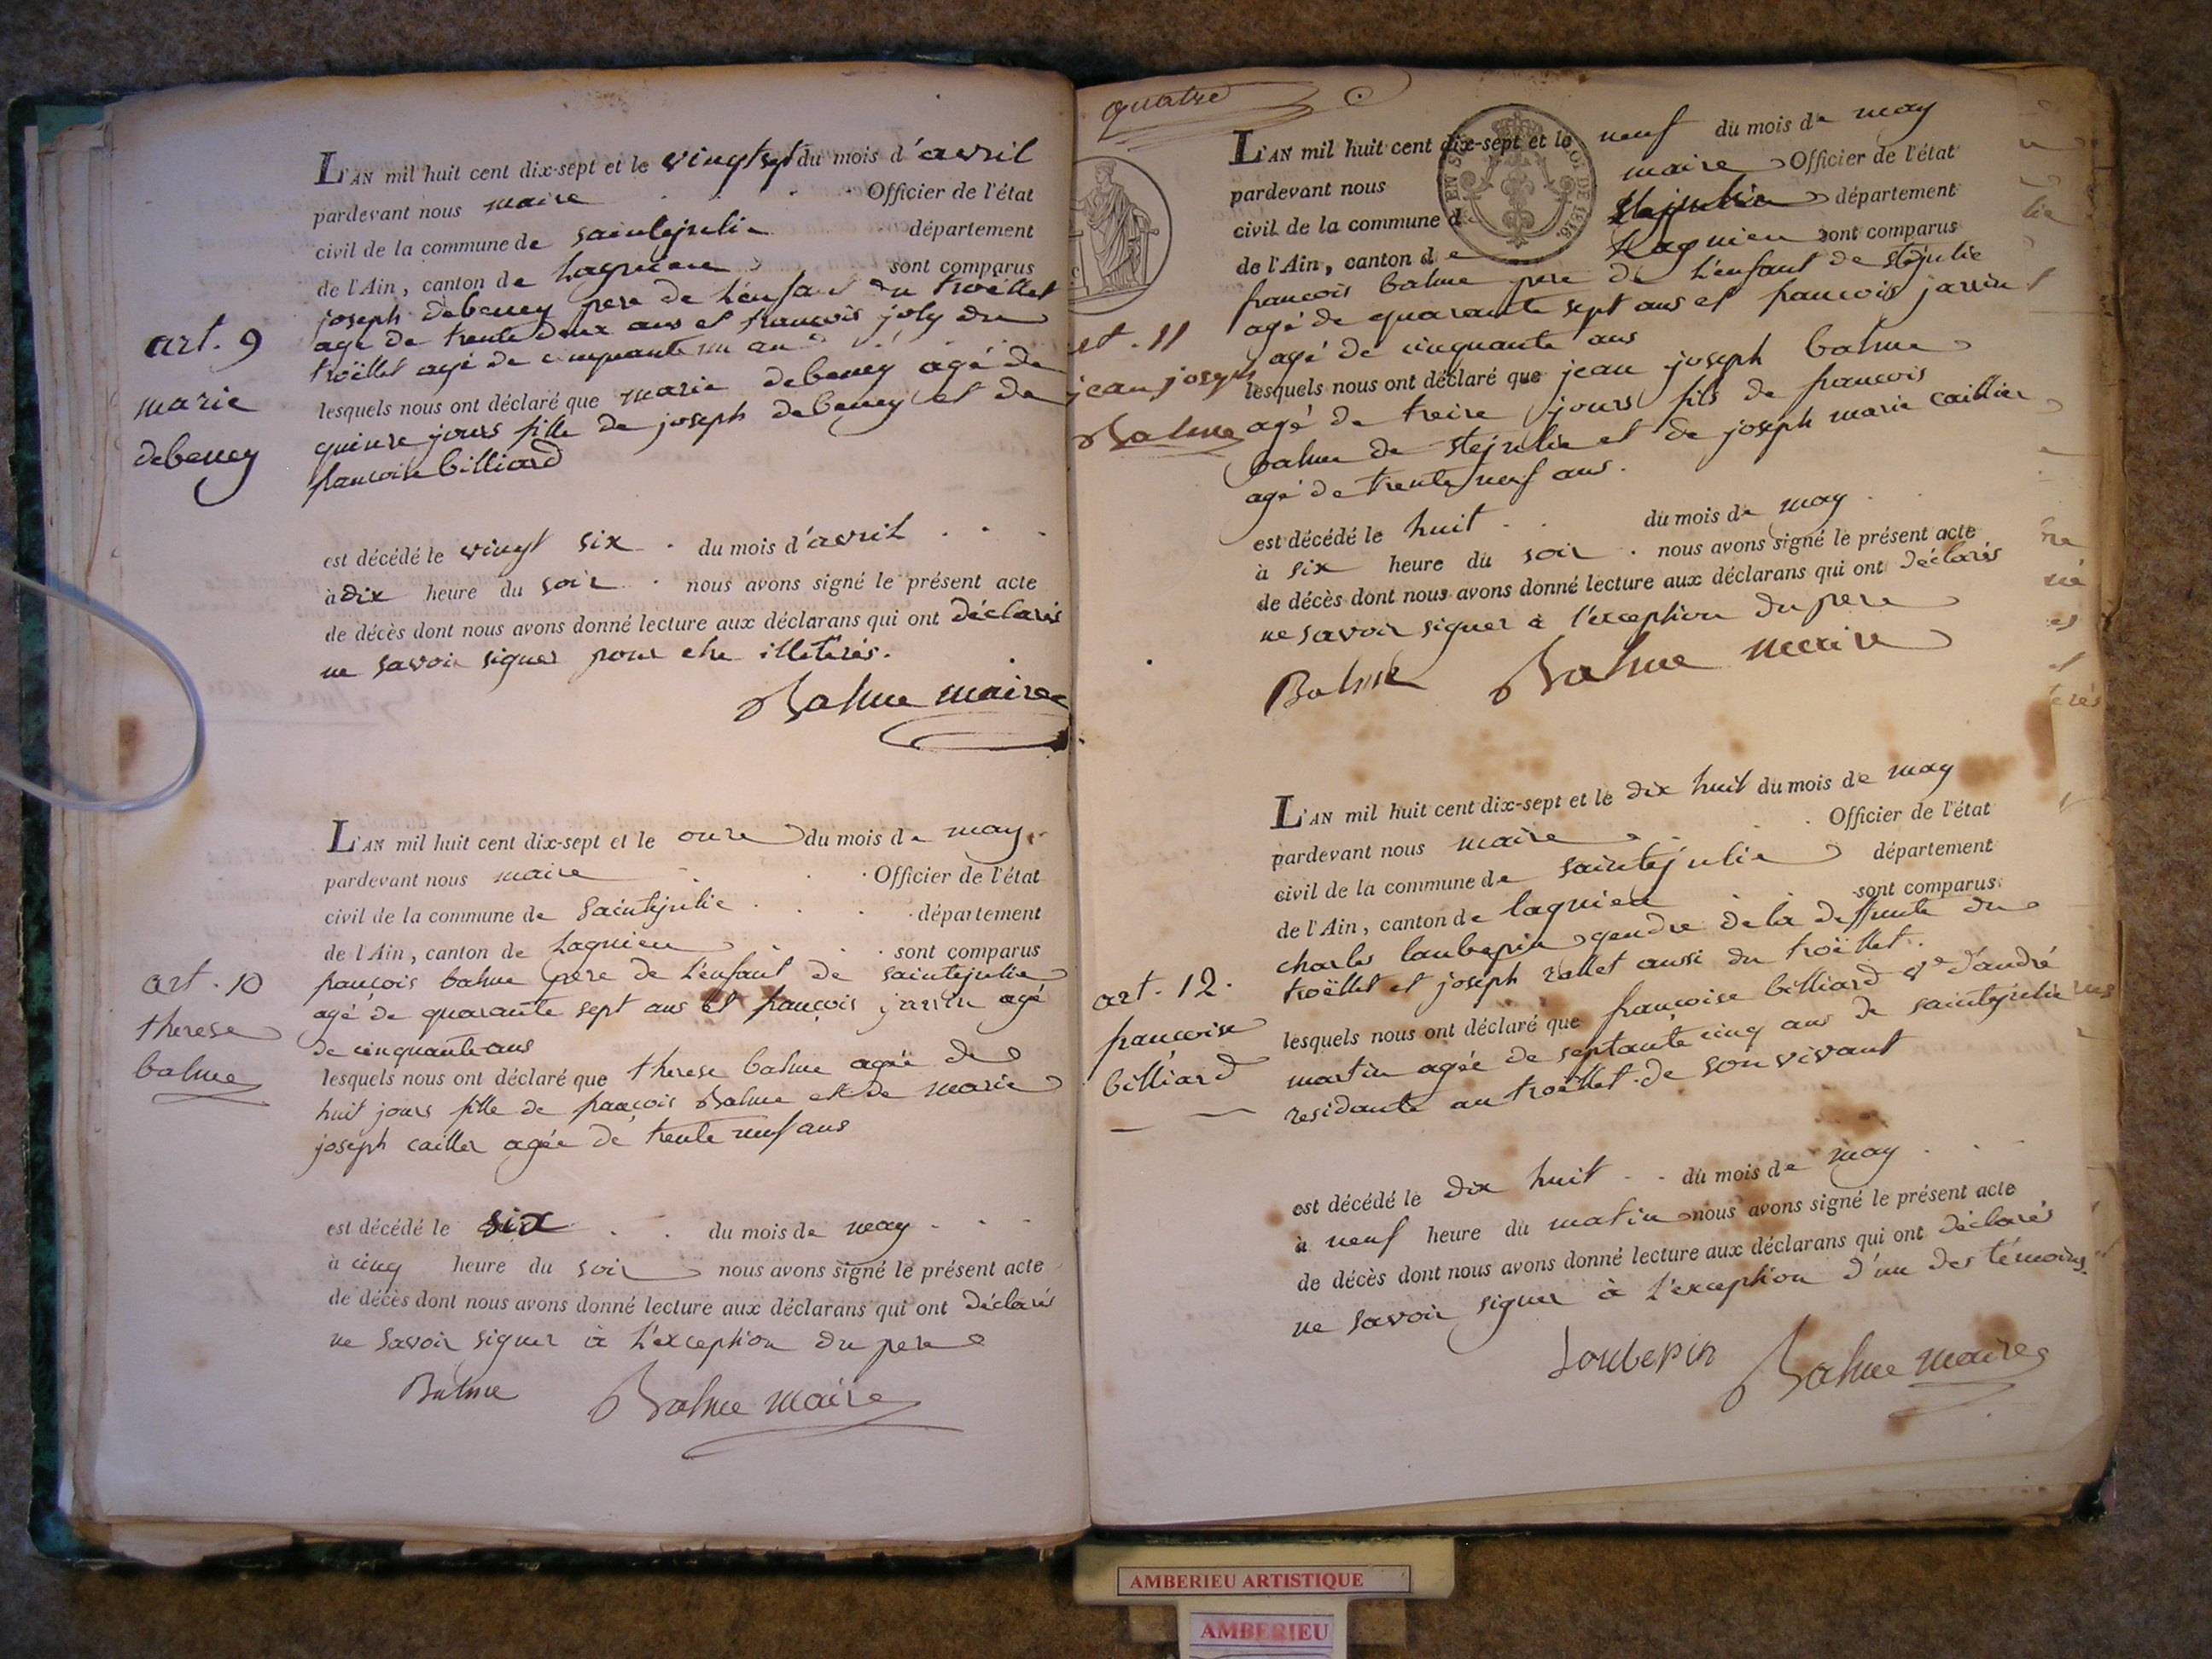 L'AN mil huit cent dix-sept et le vingt sept du mois d'avril
pardevant nous maire Officier de l'état
civil de la commune de saintejulie département
de l'Ain, canton de Lagnieu sont comparus
joseph debeney pere de l'enfant du troëllet
agé de trente deux ans et francois joly du
troëllet agé de cinquante un an
art. 9
marie
debeney
lesquels nous ont déclaré que marie debeney agé de
quinze jours fille de joseph debeney et de
francoise billiard
est décédé le vingt six du mois d'avril
à dix heure du soir nous avons signé le présent acte
de décès dont nous avons donné lecture aux déclarans qui ont déclarés
ne savoir signer pour etre illétirés.
Balme maire
L'AN mil huit cent dix-sept et le onze du mois de may
pardevant nous maire Officier de l'état
civil de la commune de Saintejulie département
de l'Ain, canton de Lagnieu sont comparus
art. 10
therese
balme
francois balme pere de l'enfant de saintejulie
agé de quarante sept ans et francois jarrin agé
de cinquante ans
lesquels nous ont déclaré que therese balme agée de
huit jours fille de francois Balme et de marie
joseph cailler agée de trente neuf ans
est décédé le six du mois de may
à cinq heure du soir nous avons signé le présent acte
de décès dont nous avons donné lecture aux déclarans qui ont déclarés
ne savoir signer à l'exception du pere
Balme Balme maire
quatre
L'AN mil huit cent dix-sept et le neuf du mois de may
pardevant nous maire Officier de l'état
civil de la commune de Stejulie département
de l'Ain, canton de Lagnieu sont comparus
francois balme pere de l'enfant de stejulie
agé de quarante sept ans et francois jarrin
agé de cinquante ans
art. 11
jean joseph
Balme
lesquels nous ont déclaré que jean joseph balme
agé de treize jours fils de francois
balme de stejulie et de joseph marie caillier
agé de trente neuf ans.
est décédé le huit du mois de may
à six heure du soir nous avons signé le présent acte
de décès dont nous avons donné lecture aux déclarans qui ont déclarés
ne savoir signer à l'exception du pere
Balme Balme maire
L'AN mil huit cent dix-sept et le dix huit du mois de may
pardevant nous maire Officier de l'état
civil de la commune de saintejulie département
de l'Ain, canton de lagnieu sont comparus
charles laubepin gendre de la deffunte du
troëllet et joseph rollet aussi du troëllet.
art. 12.
francoise
billiard
lesquels nous ont déclaré que francoise billiard ve d'andré
martin agée de septante cinq ans de saintejulie
residante au troëllet de son vivant
est décédé le dix huit du mois de may
à neuf heure du matin nous avons signé le présent acte
de décès dont nous avons donné lecture aux déclarans qui ont déclarés
ne savoir signer à l'exception d'un des témoins.
Loubepin Balme maire
AMBERIEU ARTISTIQUE
AMBERIEU